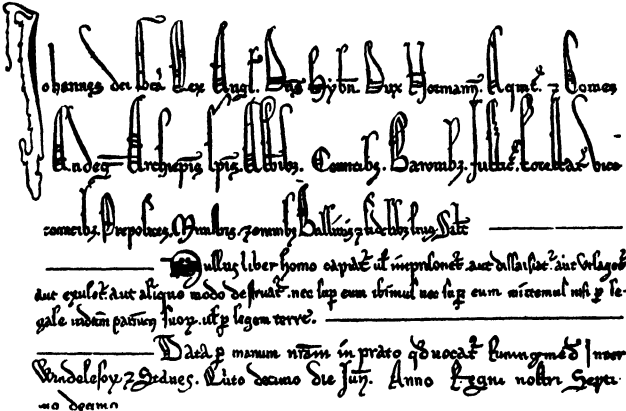 Johannes dei gra Rex Angl. Dns Hybn. Dux Normann. Aqint. ⁊ Comes
Andeg Archiepis. Epis. Abbibus. Comitibz. Baronibz. Justic. Forestar. vice-
comitibz. Prepositis. Ministris. ⁊ omnibz Ballivis ⁊ fidelibz suis. Salt
Nullus liber homo capiat. ul' inprisonet. aut dissaisiat. aut utlaget.
aut exulet. aut aliquo modo destruat. nec sup eum ibimus nec sup eum mittemus nisi p le-
gale iudicium parium suor. ul' p legem terre.
Data p manum nram in prato qd vocat Runingmed Inter
Windelesor ⁊ Stanes. Quito decimo die Jun. Anno Regni nostri Septi-
mo decimo